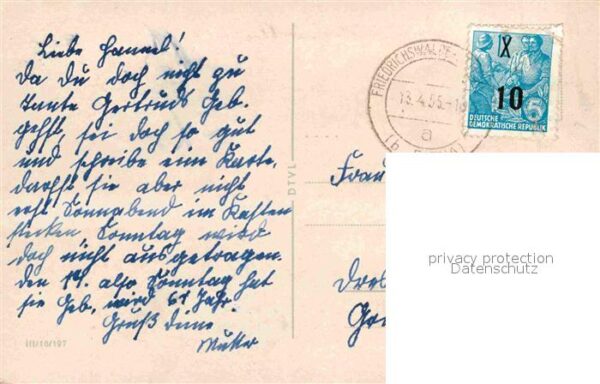 Liebe Hannel!
Da Du doch nicht zu
Tante Gertruds Geb.
gehst, sei doch so gut
und schreibe eine Karte,
darfst sie aber nicht
erst Sonnabend im Kasten
stecken Sonntag wird
doch nicht ausgetragen.
den 17. also Sonntag hat
sie Geb. wird 61 Jahr.
Gruß deine
Mutter
III/18/197
DTVL
FRIEDRICHSWALDE
13.4.55
a
X
10
DEUTSCHE
DEMOKRATISCHE REPUBLIK
Frau
Dres
privacy protection
Datenschutz